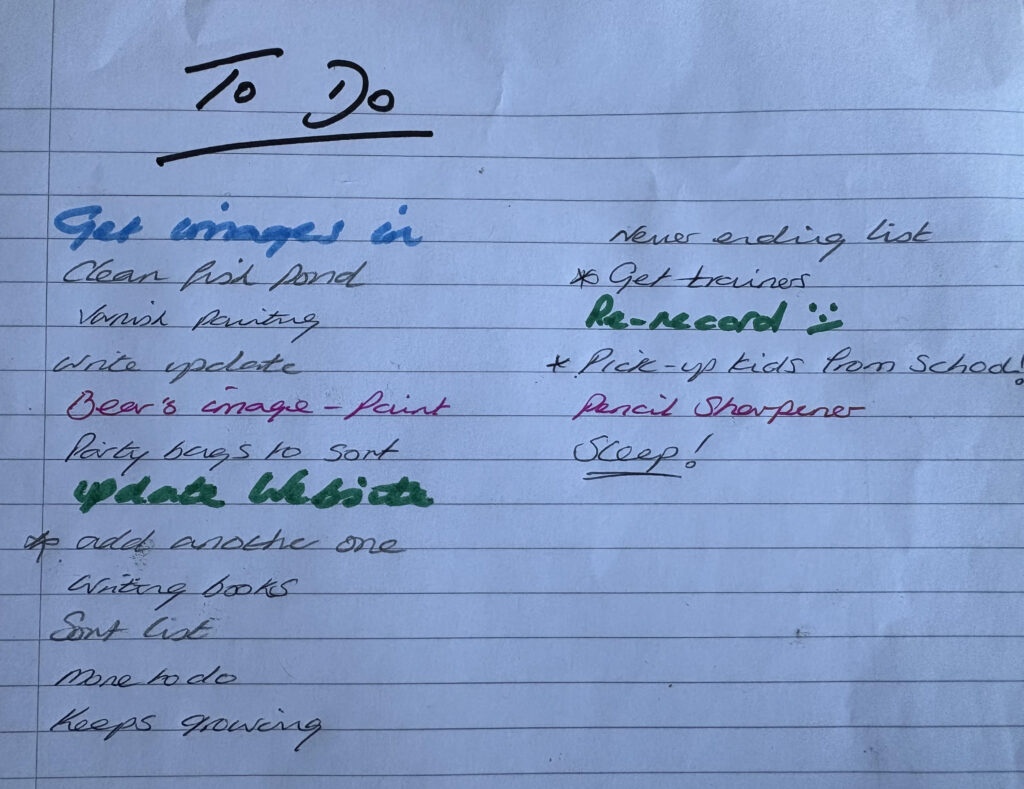 To Do
Get images in
Clean fish pond
Varnish painting
Write update
Bear's image - Paint
Party bags to sort
update Website
* add another one
Writing books
Sort list
More to do
Keeps growing
Never ending list
* Get trainers
Re-record :)
* Pick-up kids from School!
Pencil Sharpener
Sleep!